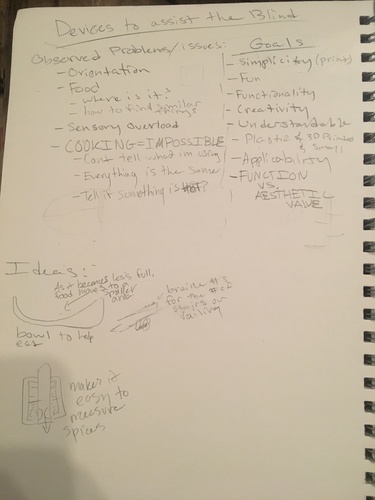 Devices to assist the Blind
Observed Problems/issues:
- Orientation
- Food
- where is it?
- how to find similar things
- Sensory overload
- COOKING = IMPOSSIBLE
- Can't tell what im using
- Everything is the same
- Tell if something is HOT?
Goals
- Simplicity (print)
- Fun
- Functionality
- Creativity
- Understandable
- Plastic & 3D Printed
& small
- Applicability
- FUNCTION
VS.
AESTHETIC
VALUE
Ideas:
As it becomes less full,
food moves to a
smaller
area
bowl to help
eat
braille #'s
for the # of
stairs on
railing
makes it
easy to
measure
spices